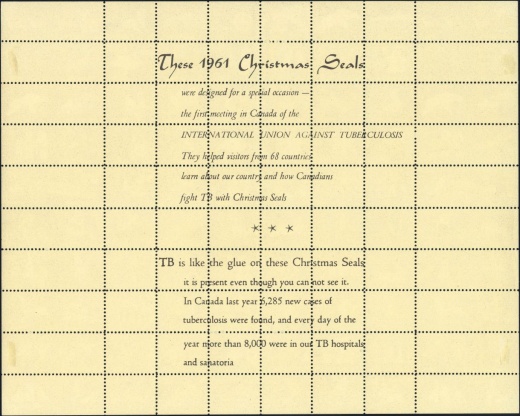 These 1961 Christmas Seals
were designed for a special occasion —
the first meeting in Canada of the
INTERNATIONAL UNION AGAINST TUBERCULOSIS
They helped visitors from 68 countries
learn about our country and how Canadians
fight TB with Christmas Seals
TB is like the glue on these Christmas Seals
it is present even though you can not see it.
In Canada last year 6,285 new cases of
tuberculosis were found, and every day of the
year more than 8,000 were in our TB hospitals
and sanatoria